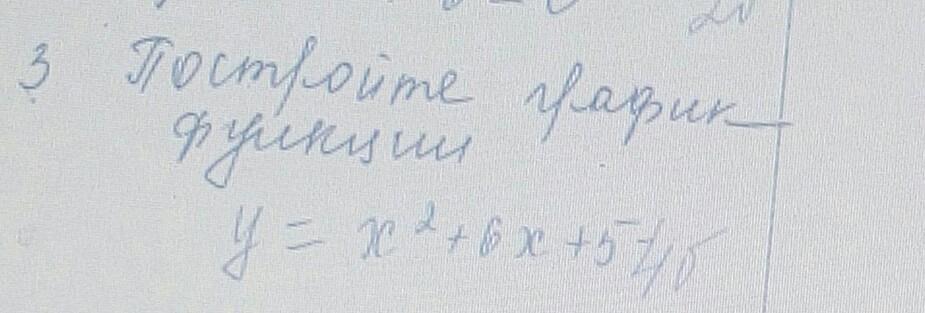 3 Постройте график
функции
y = x² + 6x + 5